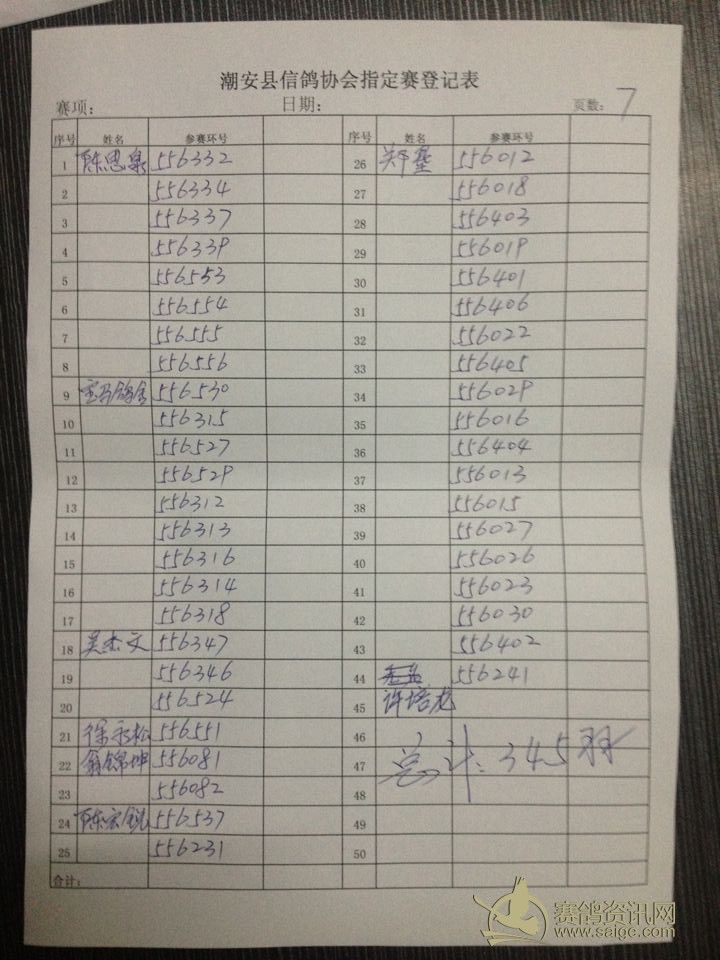 潮安县信鸽协会指定赛登记表
赛项： 日期： 页数：7
序号 姓名 参赛环号 序号 姓名 参赛环号
1 陈思泉 556332 26 郑 556012
2 556334 27 556018
3 556337 28 556403
4 556339 29 556019
5 556553 30 556401
6 556554 31 556406
7 556555 32 556022
8 556556 33 556405
9 宝马鸽舍 556530 34 556029
10 556315 35 556016
11 556527 36 556404
12 556529 37 556013
13 556312 38 556015
14 556313 39 556027
15 556316 40 556026
16 556314 41 556023
17 556318 42 556030
18 吴杰文 556347 43 556402
19 556346 44 556241
20 556524 45 许培龙
21 徐永松 556551 46
22 翁锦坤 556081 47 总计：345羽
23 556082 48
24 陈宏锐 556537 49
25 556231 50
合计：
赛鸽资讯网
www.saige.com